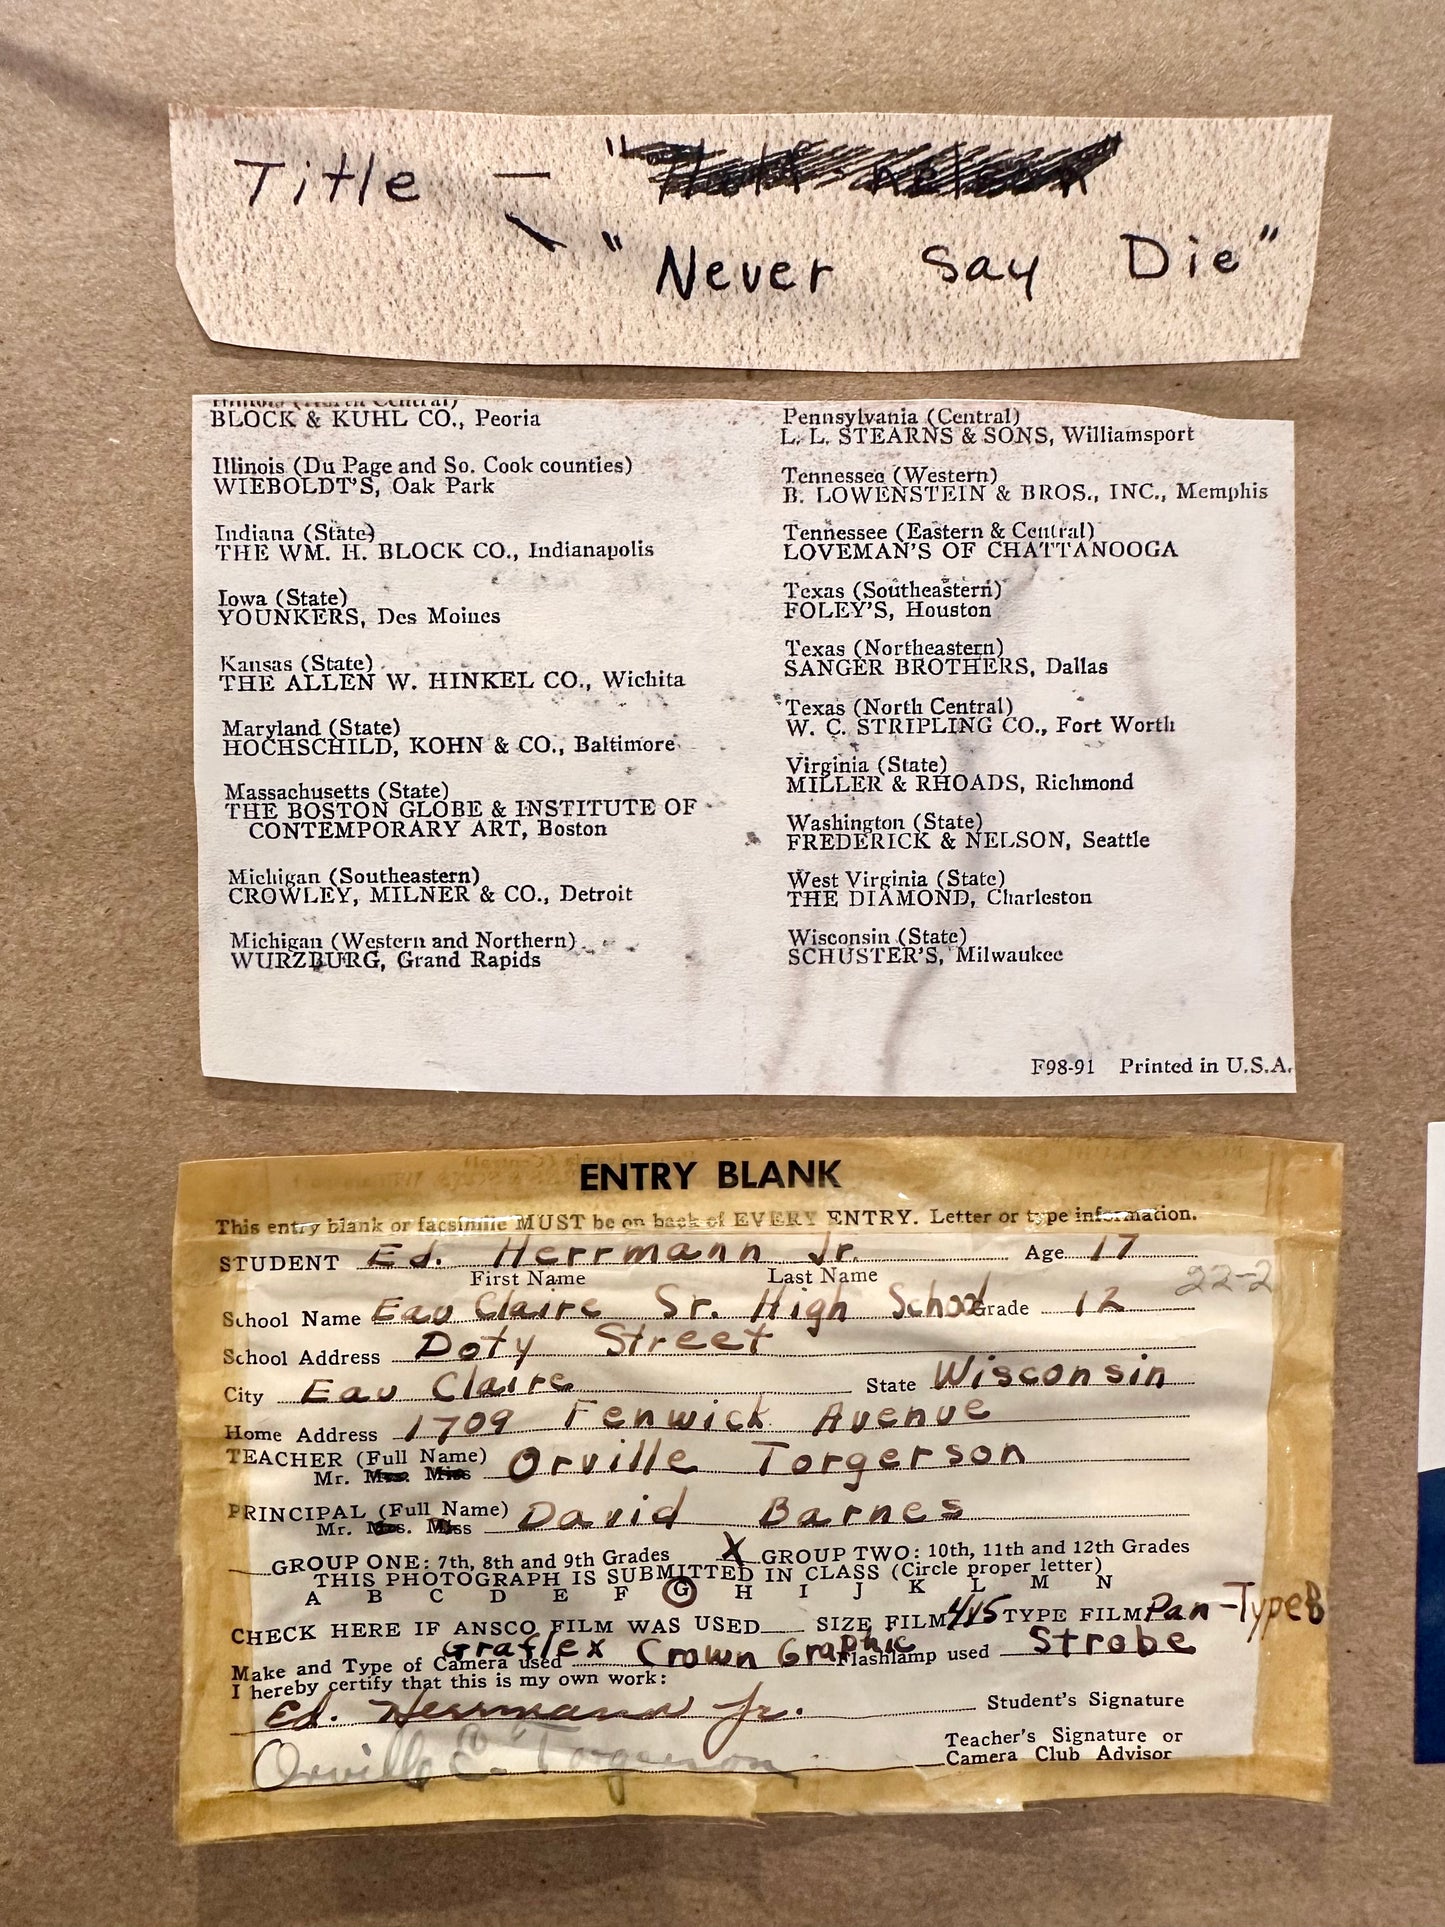 Title — "
"Never Say Die"
Illinois (North Central)
BLOCK & KUHL CO., Peoria
Illinois (Du Page and So. Cook counties)
WIEBOLDT'S, Oak Park
Indiana (State)
THE WM. H. BLOCK CO., Indianapolis
Iowa (State)
YOUNKERS, Des Moines
Kansas (State)
THE ALLEN W. HINKEL CO., Wichita
Maryland (State)
HOCHSCHILD, KOHN & CO., Baltimore
Massachusetts (State)
THE BOSTON GLOBE & INSTITUTE OF
CONTEMPORARY ART, Boston
Michigan (Southeastern)
CROWLEY, MILNER & CO., Detroit
Michigan (Western and Northern)
WURZBURG, Grand Rapids
Pennsylvania (Central)
L. L. STEARNS & SONS, Williamsport
Tennessee (Western)
B. LOWENSTEIN & BROS., INC., Memphis
Tennessee (Eastern & Central)
LOVEMAN'S OF CHATTANOOGA
Texas (Southeastern)
FOLEY'S, Houston
Texas (Northeastern)
SANGER BROTHERS, Dallas
Texas (North Central)
W. C. STRIPLING CO., Fort Worth
Virginia (State)
MILLER & RHOADS, Richmond
Washington (State)
FREDERICK & NELSON, Seattle
West Virginia (State)
THE DIAMOND, Charleston
Wisconsin (State)
SCHUSTER'S, Milwaukee
F98-91 Printed in U.S.A.
ENTRY BLANK
This entry blank or facsimile MUST be on back of EVERY ENTRY. Letter or type information.
STUDENT Ed. Herrmann Jr. Age 17
First Name Last Name 22-2
School Name Eau Claire Sr. High School Grade 12
School Address Doty Street
City Eau Claire State Wisconsin
Home Address 1709 Fenwick Avenue
TEACHER (Full Name) Orville Torgerson
Mr. Mrs. Miss
PRINCIPAL (Full Name) David Barnes
Mr. Mrs. Miss
GROUP ONE: 7th, 8th and 9th Grades X GROUP TWO: 10th, 11th and 12th Grades
THIS PHOTOGRAPH IS SUBMITTED IN CLASS (Circle proper letter)
A B C D E F G H I J K L M N
CHECK HERE IF ANSCO FILM WAS USED SIZE FILM 4x5 TYPE FILM Pan-Type B
Make and Type of Camera used Graflex Crown Graphic Flashlamp used Strobe
I hereby certify that this is my own work:
Ed. Herrmann Jr. Student's Signature
Orville E. Torgerson Teacher's Signature or
Camera Club Advisor